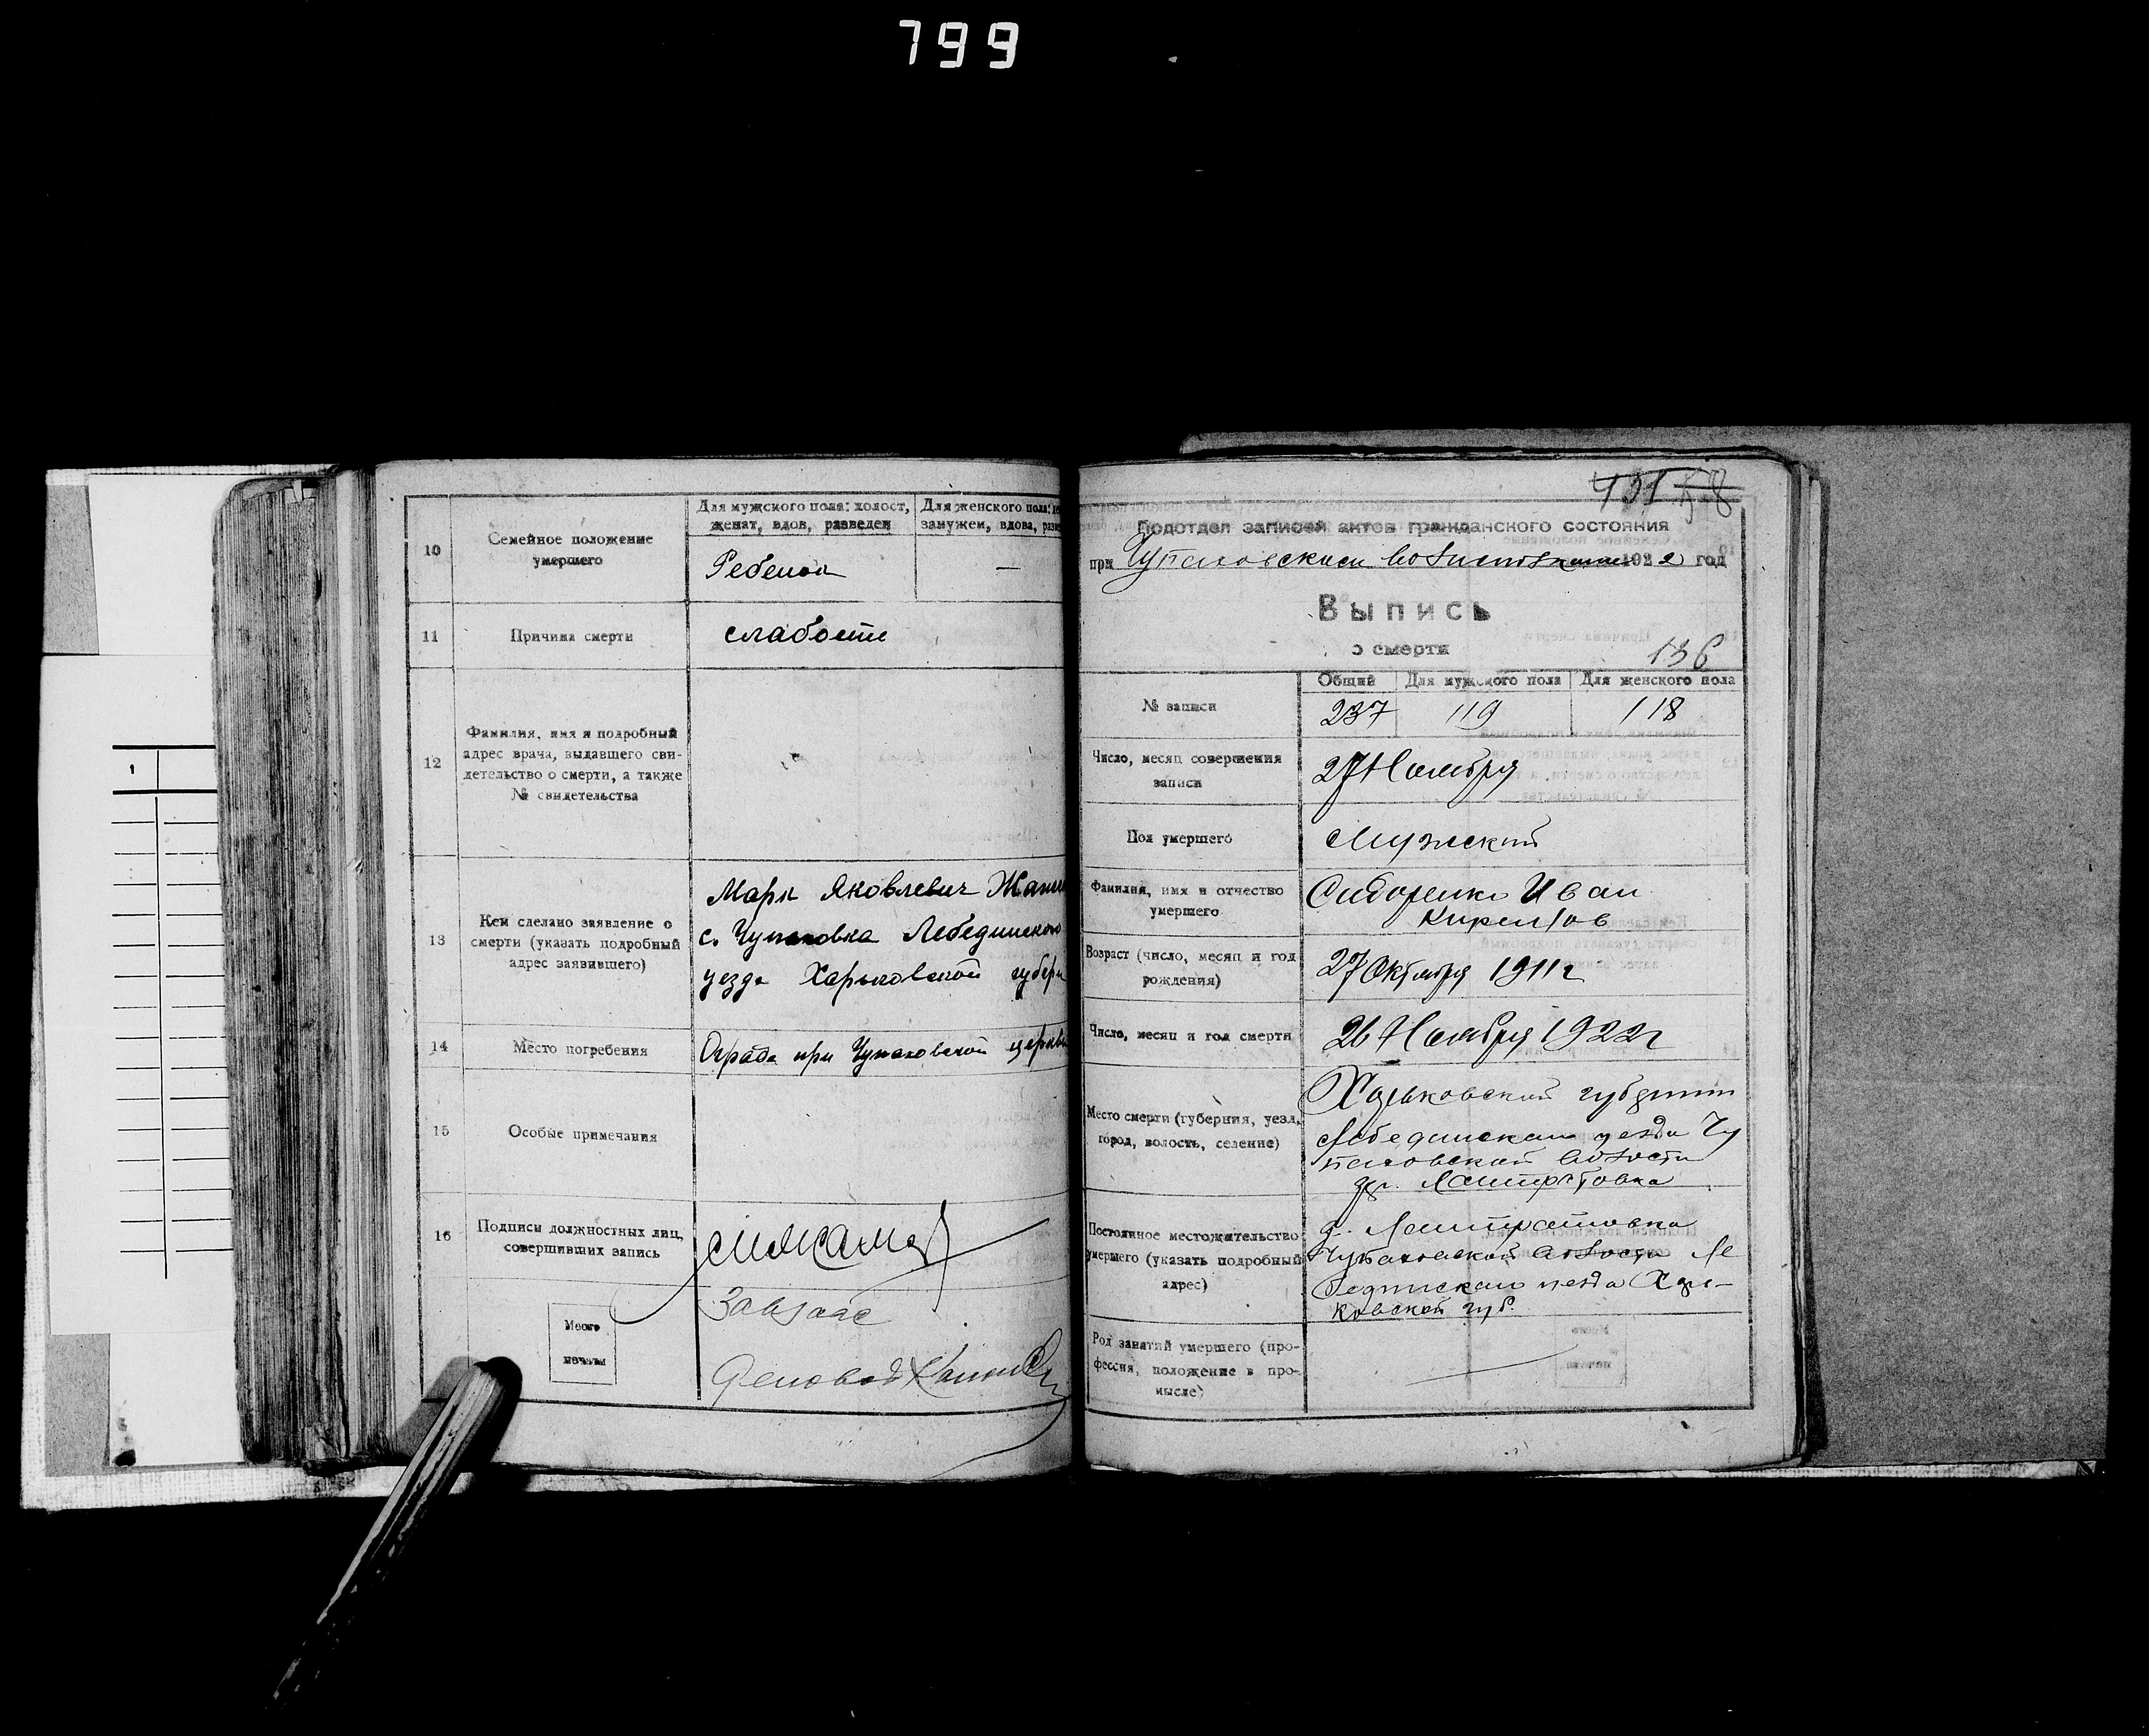 799
10
Семейное положение
умершего
Для мужского пола: холост,
женат, вдов, разведен
Для женского пола:
замужем, вдова,
Ребенок
—
11
Причина смерти
слабости
12
Фамилия, имя и подробный
адрес врача, выдавшего сви-
детельство о смерти, а также
№ свидетельства
13
Кем сделано заявление о
смерти (указать подробный
адрес заявившего)
Марк Яковлевич
с. Чупаховка Лебединского
уезда Харьковской губерн
14
Место погребения
Ограда при Чупаховской церкви
15
Особые примечания
16
Подписи должностных лиц,
совершивших запись
Место
печати
Завзагс
Деловод
Подотдел записей актов гражданского состояния
при Чупаховском 1922 год
Выпись
о смерти
136
№ записи
Общий
Для мужского пола
Для женского пола
237
119
118
Число, месяц совершения
записи
27 Ноября
Пол умершего
Мужский
Фамилия, имя и отчество
умершего
Сидоренко Иван
Кирилов
Возраст (число, месяц и год
рождения)
27 Октября 1911 г
Число, месяц и год смерти
26 Ноября 1922 г
Место смерти (губерния, уезд,
город, волость, селение)
Харьковской губернии
Лебединскаго уезда Чу
паховской волости
Постоянное местожительство
умершего (указать подробный
адрес)
Чупаховской волости Ле
бединскаго уезда Харь-
ковской губ.
Род занятий умершего (про-
фессия, положение в про-
мысле)
1